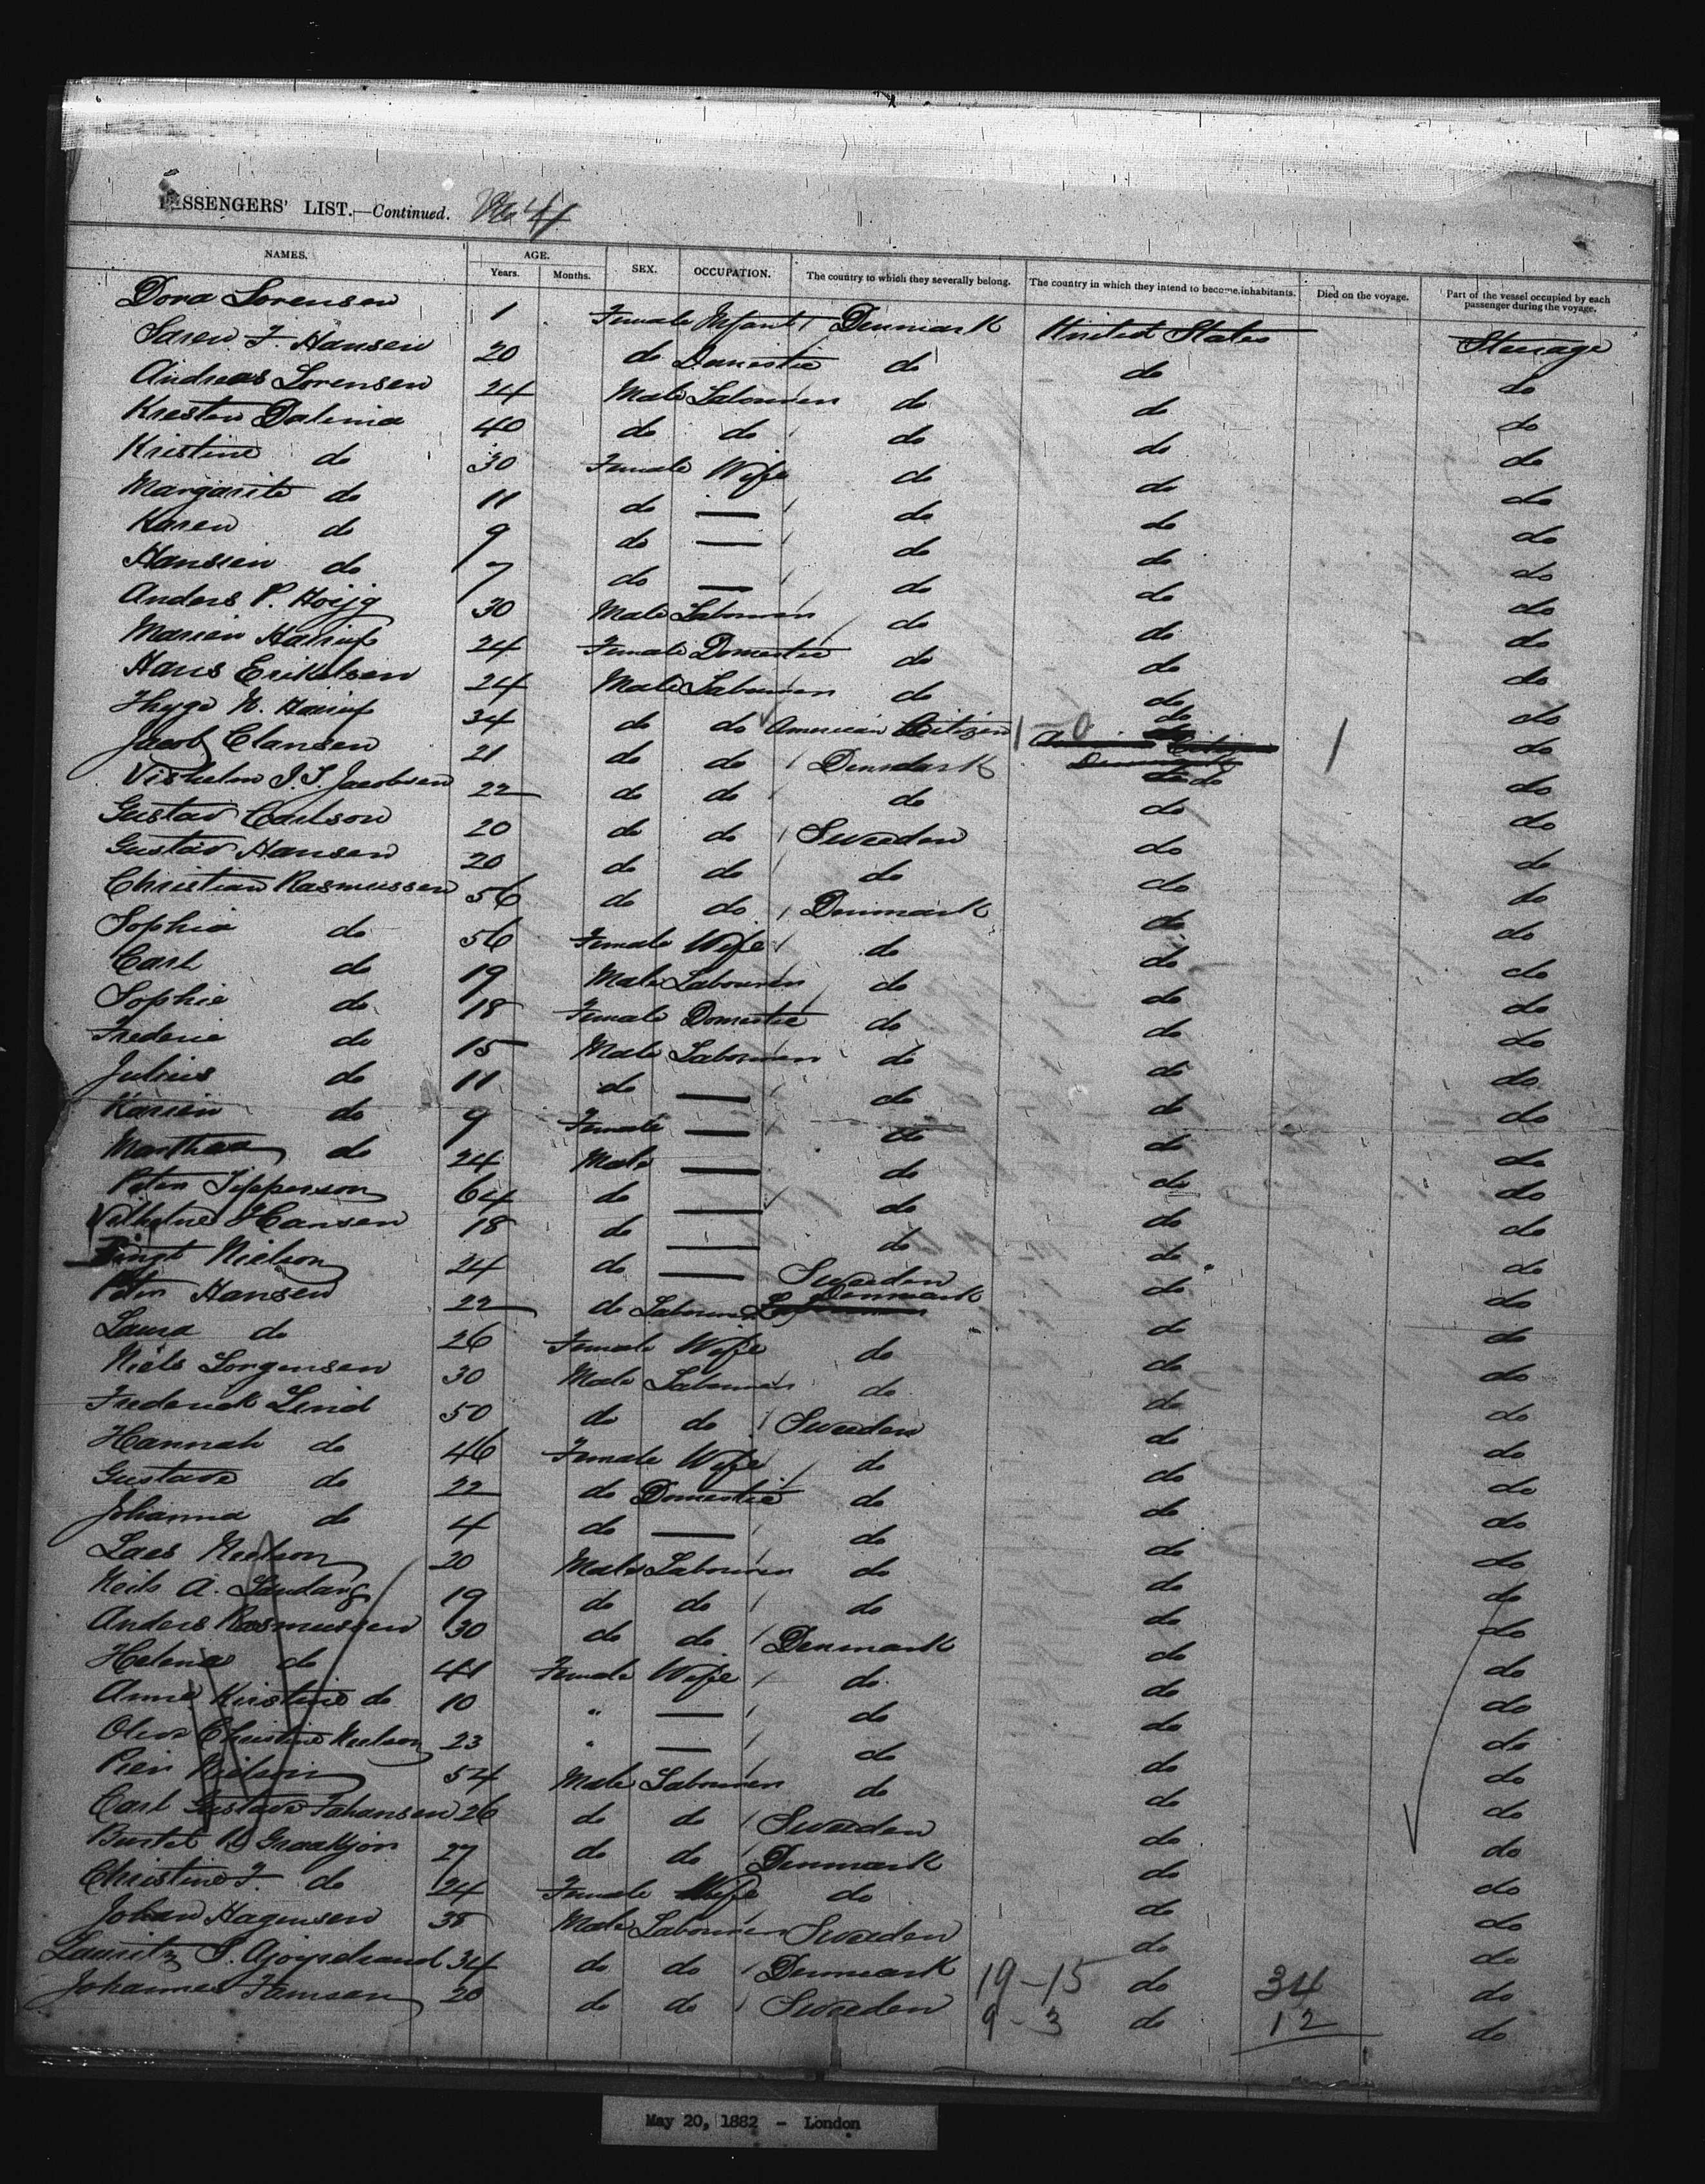 PASSENGERS' LIST.—Continued. No 4
NAMES. AGE. Years. Months. SEX. OCCUPATION. The country to which they severally belong. The country in which they intend to become inhabitants. Died on the voyage. Part of the vessel occupied by each passenger during the voyage.
Dora Sorensen 1 Female Infant Denmark United States Steerage
Saren F. Hansen 20 do Domestic do do do
Andreas Sorensen 24 Male Labourer do do do
Kresten Dalema 40 do do do do do
Kristine do 30 Female Wife do do do
Margarite do 11 do — do do do
Karen do 9 do — do do do
Hansien do 7 do — do do do
Anders P. Hoijg 30 Male Labourer do do do
Marien 24 Female Domestic do do do
Hans Erikelsen 24 Male Labourer do do do
Thyge N. 34 do do American Citizen 1-0 do 1 do
Jacob Clansen 21 do do Denmark do do
J. S. Jacobsen 22 do do do do do
Gustav Carlson 20 do do Sweden do do
Gustav Hansen 20 do do do do do
Christian Rasmussen 56 do do Denmark do do
Sophia do 56 Female Wife do do do
Carl do 19 Male Labourer do do do
Sophie do 18 Female Domestic do do do
Frederic do 15 Male Labourer do do do
Julius do 11 do — do do do
Karien do 9 Female — do do do
Marthea do 24 Male — do do do
Peter Jepperson 64 do — do do do
Hansen 18 do — do do do
Bingt Nielson 24 do — Sweden do do
Peter Hansen 22 do Labourer Denmark do do
Laura do 26 Female Wife do do do
Niels Sorgensen 30 Male Labourer do do do
Frederick Lind 50 do do Sweden do do
Hannah do 46 Female Wife do do do
Gustava do 22 do Domestic do do do
Johanna do 4 do — do do do
Laes Neelson 20 Male Labourer do do do
Neils A. 19 do do do do do
Anders Rasmussen 30 do do Denmark do do
Helena do 41 Female Wife do do do
Anne Kirstine do 10 " — do do do
Oliva Christine Neelson 23 " — do do do
Pier 54 Male Labourer do do do
Carl Gustave Johansen 26 do do Sweden do do
Graakjor 27 do do Denmark do do
Christine F. do 24 Female Wife do do do
Johan Hagensen 38 Male Labourer Sweden do do
Lauritz S. 34 do do Denmark 19-15 do 34 do
Johannes Jamsen 20 do do Sweden 9-3 do 12 do
May 20, 1882 - London